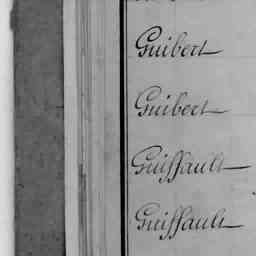 Guibert
Guibert
Guiffault
Guiffault